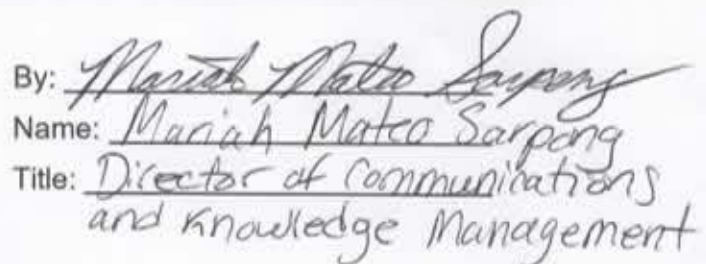 By: Mariah Mateo Sarpong
Name: Mariah Mateo Sarpong
Title: Director of Communications
and Knowledge Management